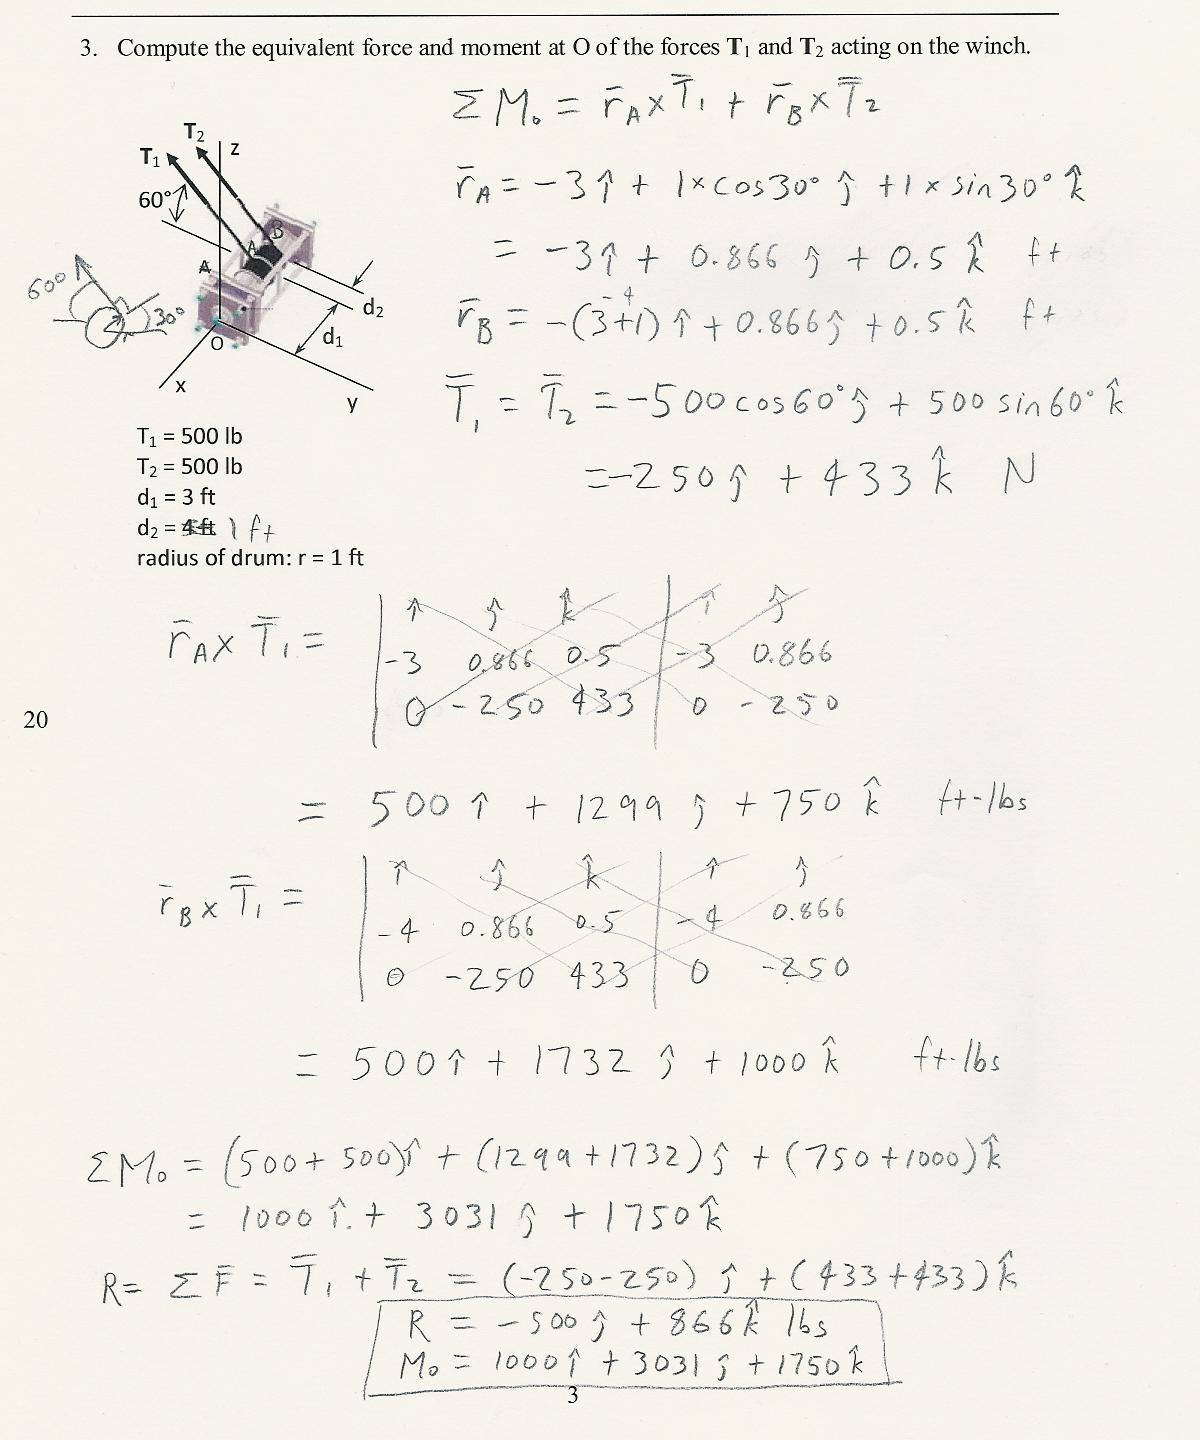 3. Compute the equivalent force and moment at O of the forces T₁ and T₂ acting on the winch.
ΣM₀ = r̄A × T̄₁ + r̄B × T̄₂
r̄A = -3î + 1×cos30° ĵ + 1×sin30° k̂
= -3î + 0.866 ĵ + 0.5 k̂ ft
r̄B = -(3+1) î + 0.866ĵ + 0.5k̂ ft
-4
T̄₁ = T̄₂ = -500cos60°ĵ + 500 sin60° k̂
= -250ĵ + 433k̂ N
T₂
z
T₁
60°
B
A
A
60°
30°
d₂
d₁
O
x
y
T₁ = 500 lb
T₂ = 500 lb
d₁ = 3 ft
d₂ = 4 ft 1 ft
radius of drum: r = 1 ft
r̄A × T̄₁ =
î ĵ k̂ | î ĵ
-3 0.866 0.5 | -3 0.866
0 -250 433 | 0 -250
20
= 500 î + 1299 ĵ + 750 k̂ ft-lbs
r̄B × T̄₁ =
î ĵ k̂ | î ĵ
-4 0.866 0.5 | -4 0.866
0 -250 433 | 0 -250
= 500î + 1732 ĵ + 1000 k̂ ft-lbs
ΣM₀ = (500+500)î + (1299+1732)ĵ + (750+1000)k̂
= 1000 î + 3031 ĵ + 1750k̂
R = ΣF̄ = T̄₁ + T̄₂ = (-250-250) ĵ + (433+433)k̂
R = -500 ĵ + 866k̂ lbs
M₀ = 1000î + 3031 ĵ + 1750k̂
3